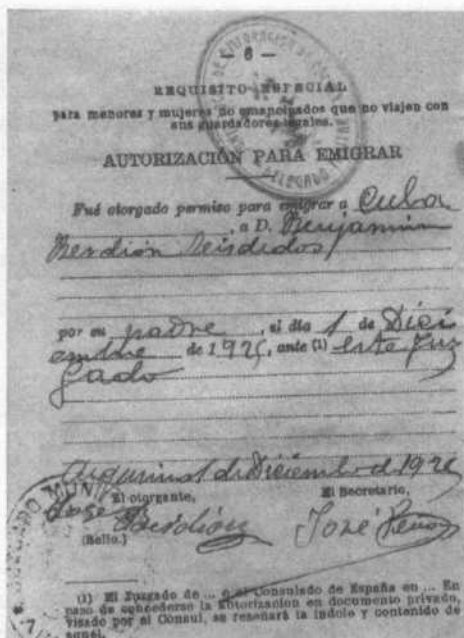 — 6 —
REQUISITO ESPECIAL
para menores y mujeres no emancipados que no viajen con
sus guardadores legales.
AUTORIZACIÓN PARA EMIGRAR
Fué otorgado permiso para emigrar a Cuba
, a D. Benjamín
Berdión Seisdedos
por su padre, el día 1 de Dici
embre de 1926, ante (1) este Juz
gado
1 de Diciembre de 1926
El otorgante,
El Secretario,
José Berdión
José
(Sello.)
(1) El Juzgado de ... o el Consulado de España en ... En
caso de concederse la autorización en documento privado,
visado por el Cónsul, se reseñará la índole y contenido de
aquél.